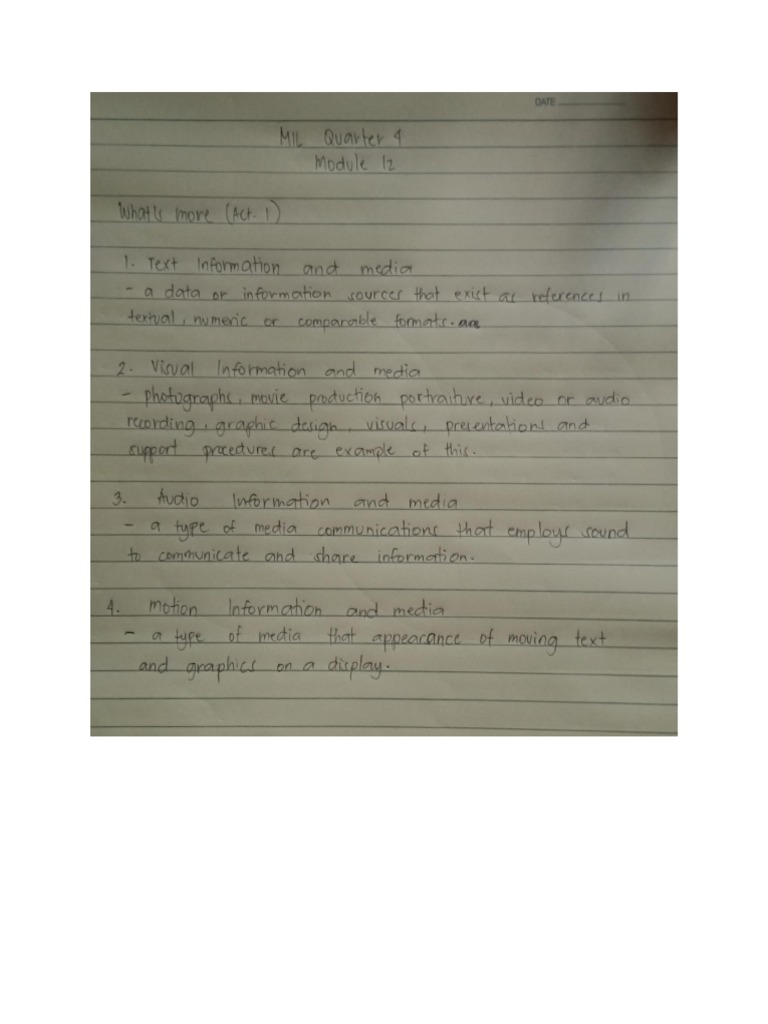 DATE
MIL Quarter 4
Module 12
What's more (Act. 1)
1. Text Information and media
- a data or information sources that exist as references in
textual, numeric or comparable formats.
2. Visual Information and media
- photographs, movie production portraiture, video or audio
recording, graphic design, visuals, presentations and
support procedures are example of this.
3. Audio Information and media
- a type of media communications that employs sound
to communicate and share information.
4. Motion Information and media
- a type of media that appearance of moving text
and graphics on a display.